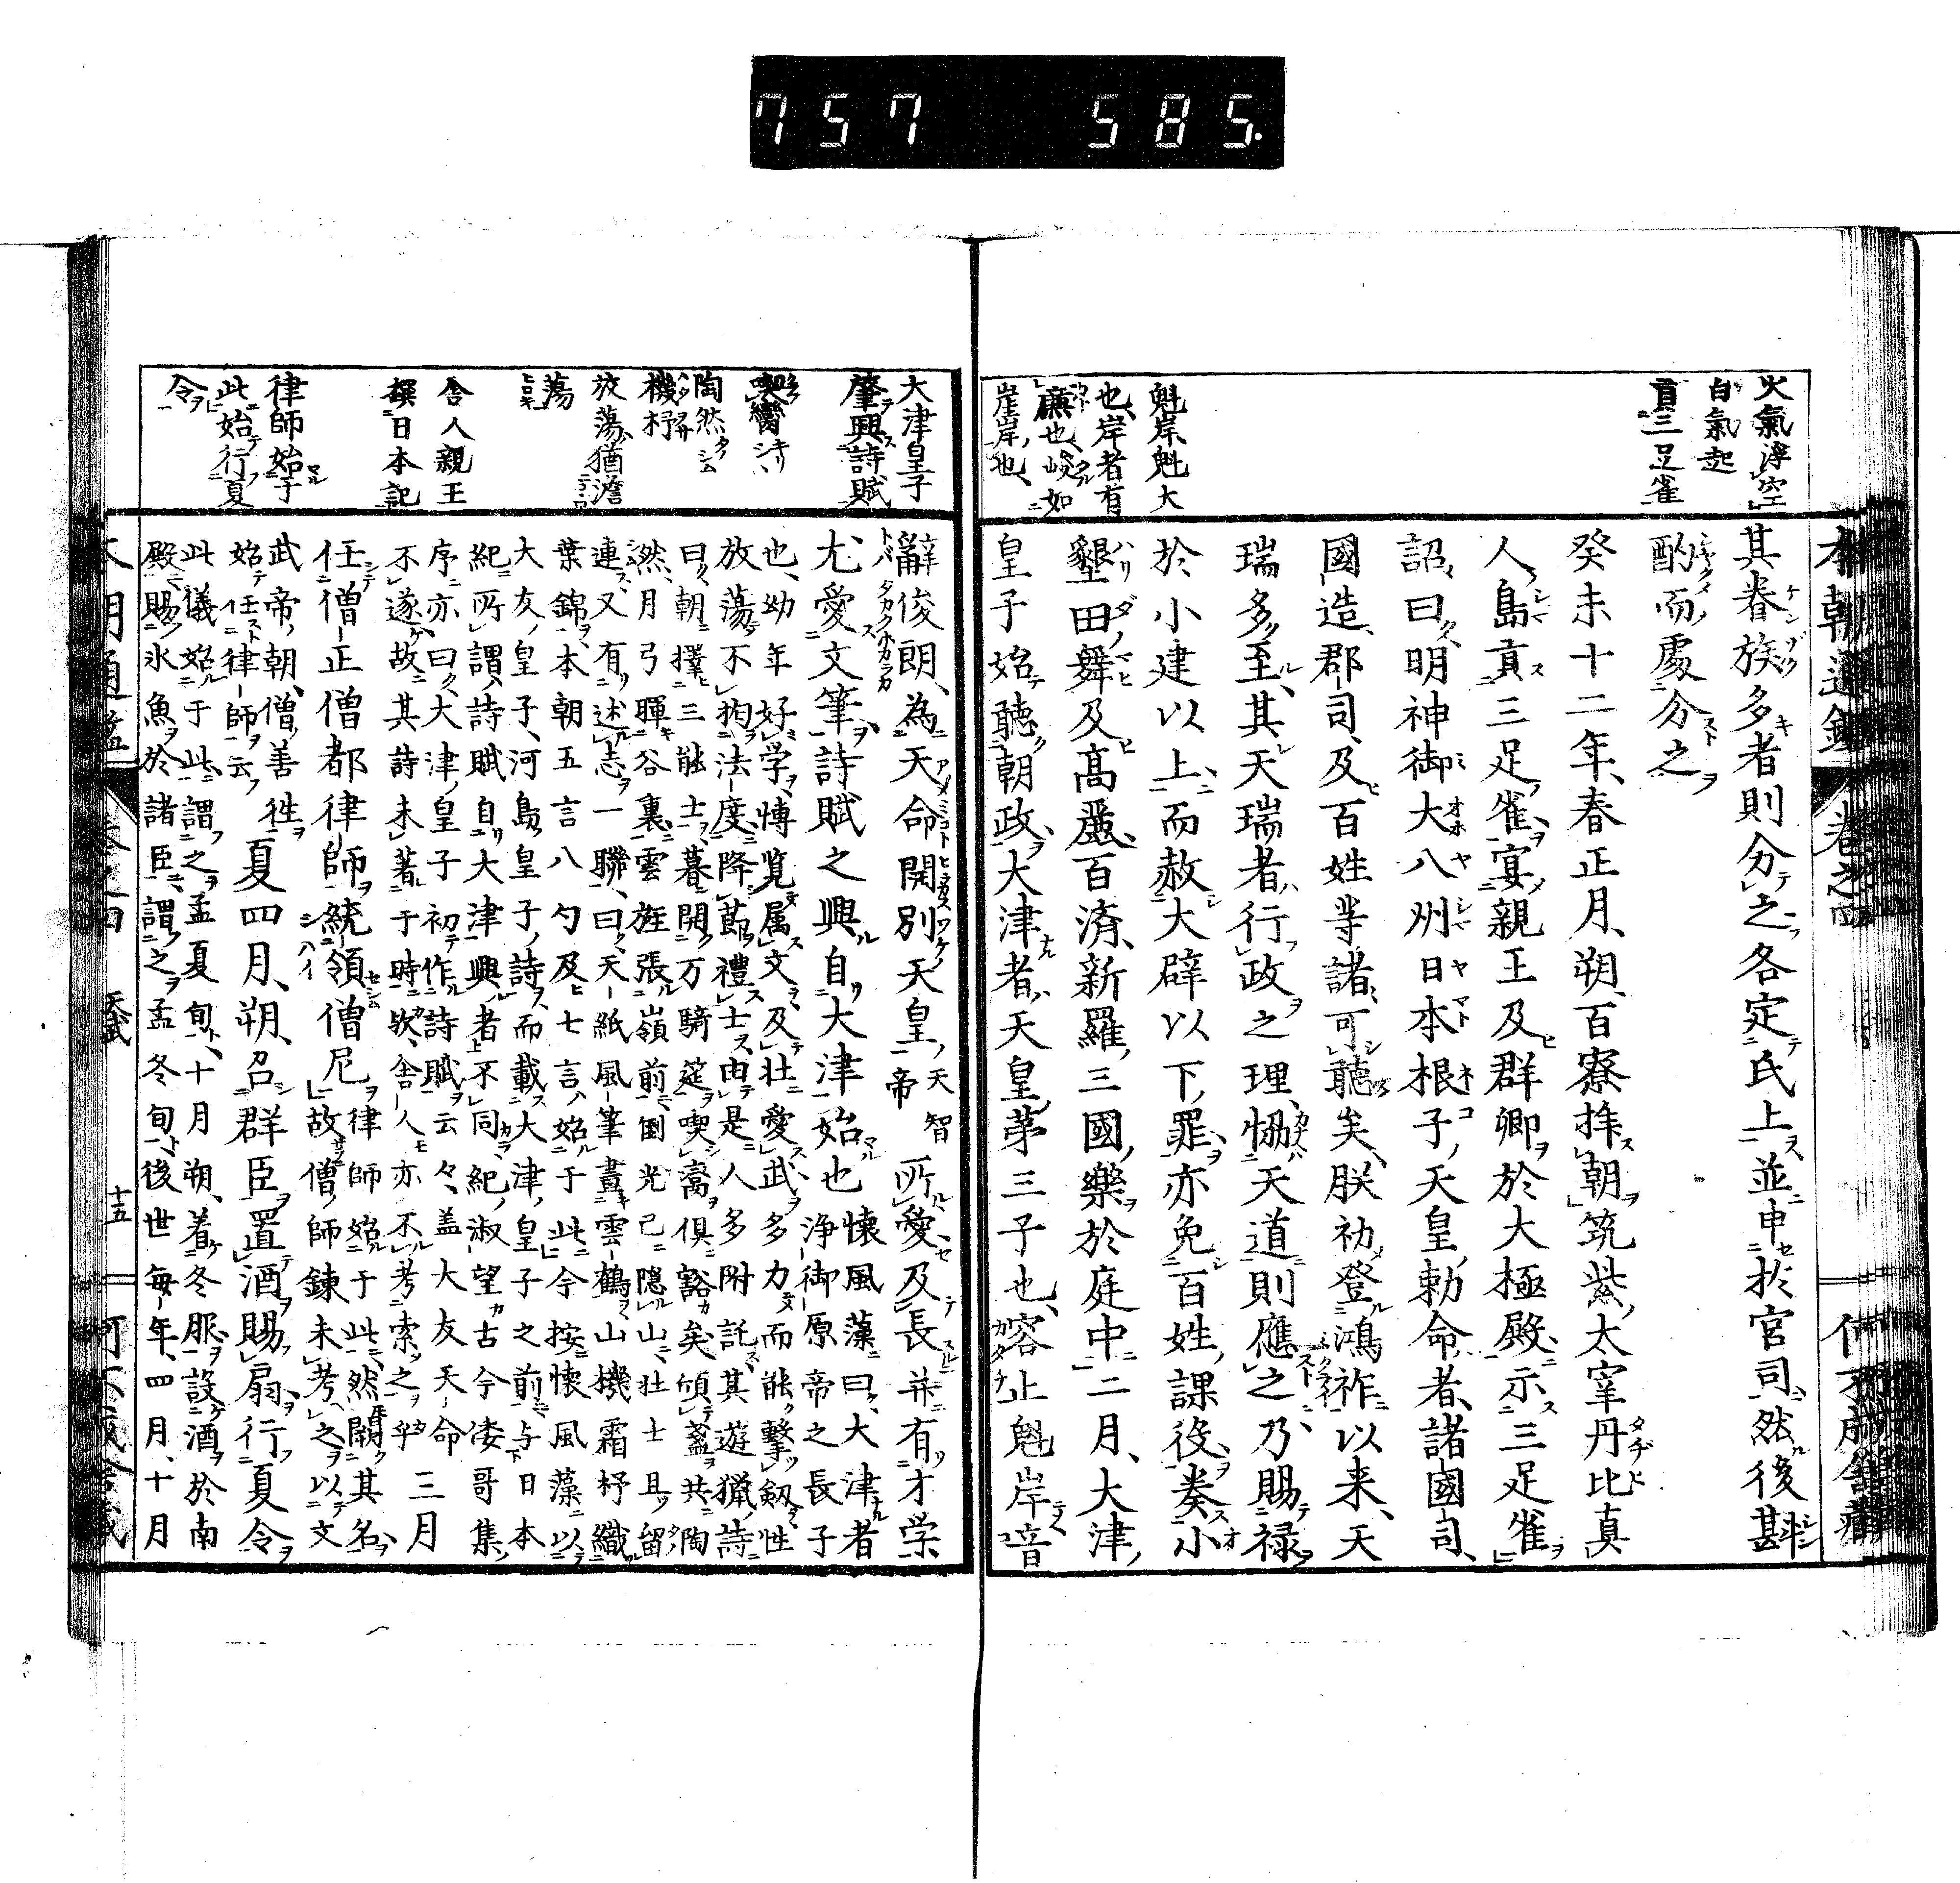 757 585.
火氣浮空
白氣起
貢三足雀
魁岸魁大
也岸者有
廉也峻如
崖岸也
其眷族多者則分之各定氏上並申於官司然後斟
酌而處分之
癸未十二年春正月朔百寮拜朝筑紫太宰丹比真
人島貢三足雀宴親王及群卿於大極殿示三足雀
詔曰明神御大八州日本根子天皇勅命者諸國司
國造郡司及百姓等諸可聽矣朕初登鴻祚以来天
瑞多至其天瑞者行政之理協天道則應之乃賜禄
於小建以上而赦大辟以下罪亦免百姓課役奏小
墾田舞及高麗百済新羅三國樂於庭中二月大津
皇子始聽朝政大津者天皇第三子也容止魁岸音
大津皇子
肇興詩賦
喫臠
陶然
機杼
放蕩猶澹
蕩
舎人親王
撰日本記
律師始于
此始行夏
令
辭俊朗為天命開別天皇天智帝所愛及長并有才学
尤愛文筆詩賦之興自大津始也懐風藻曰大津者浄御原帝之長子
也幼年好学博覧属文及壮愛武多力而能擊剱性
放蕩不拘法度降節禮士由是人多附託其遊猟詩
曰朝擇三能士暮開万騎筵喫臠倶豁矣傾盞共陶
然月弓暉谷裏雲旌張嶺前倒光已隠山壮士且留
連又有述志一聯曰天紙風筆畫雲鶴山機霜杼織
葉錦本朝五言八句及七言始于此今按懐風藻以
大友皇子河島皇子詩而載大津皇子之前与日本
紀所謂詩賦自大津興者不同紀淑望古今倭哥集
序亦曰大津皇子初作詩賦云々盖大友天命
不遂故其詩未著于時欤舎人亦不考索之乎三月
任僧正僧都律師統領僧尼律師始于此然闕其名故僧師錬未考之以文
武帝朝僧善徃始任律師云夏四月朔召群臣置酒賜扇行夏令
此儀始于此謂之孟夏旬十月朔着冬服設酒於南
殿賜氷魚於諸臣謂之孟冬旬後世毎年四月十月
十五